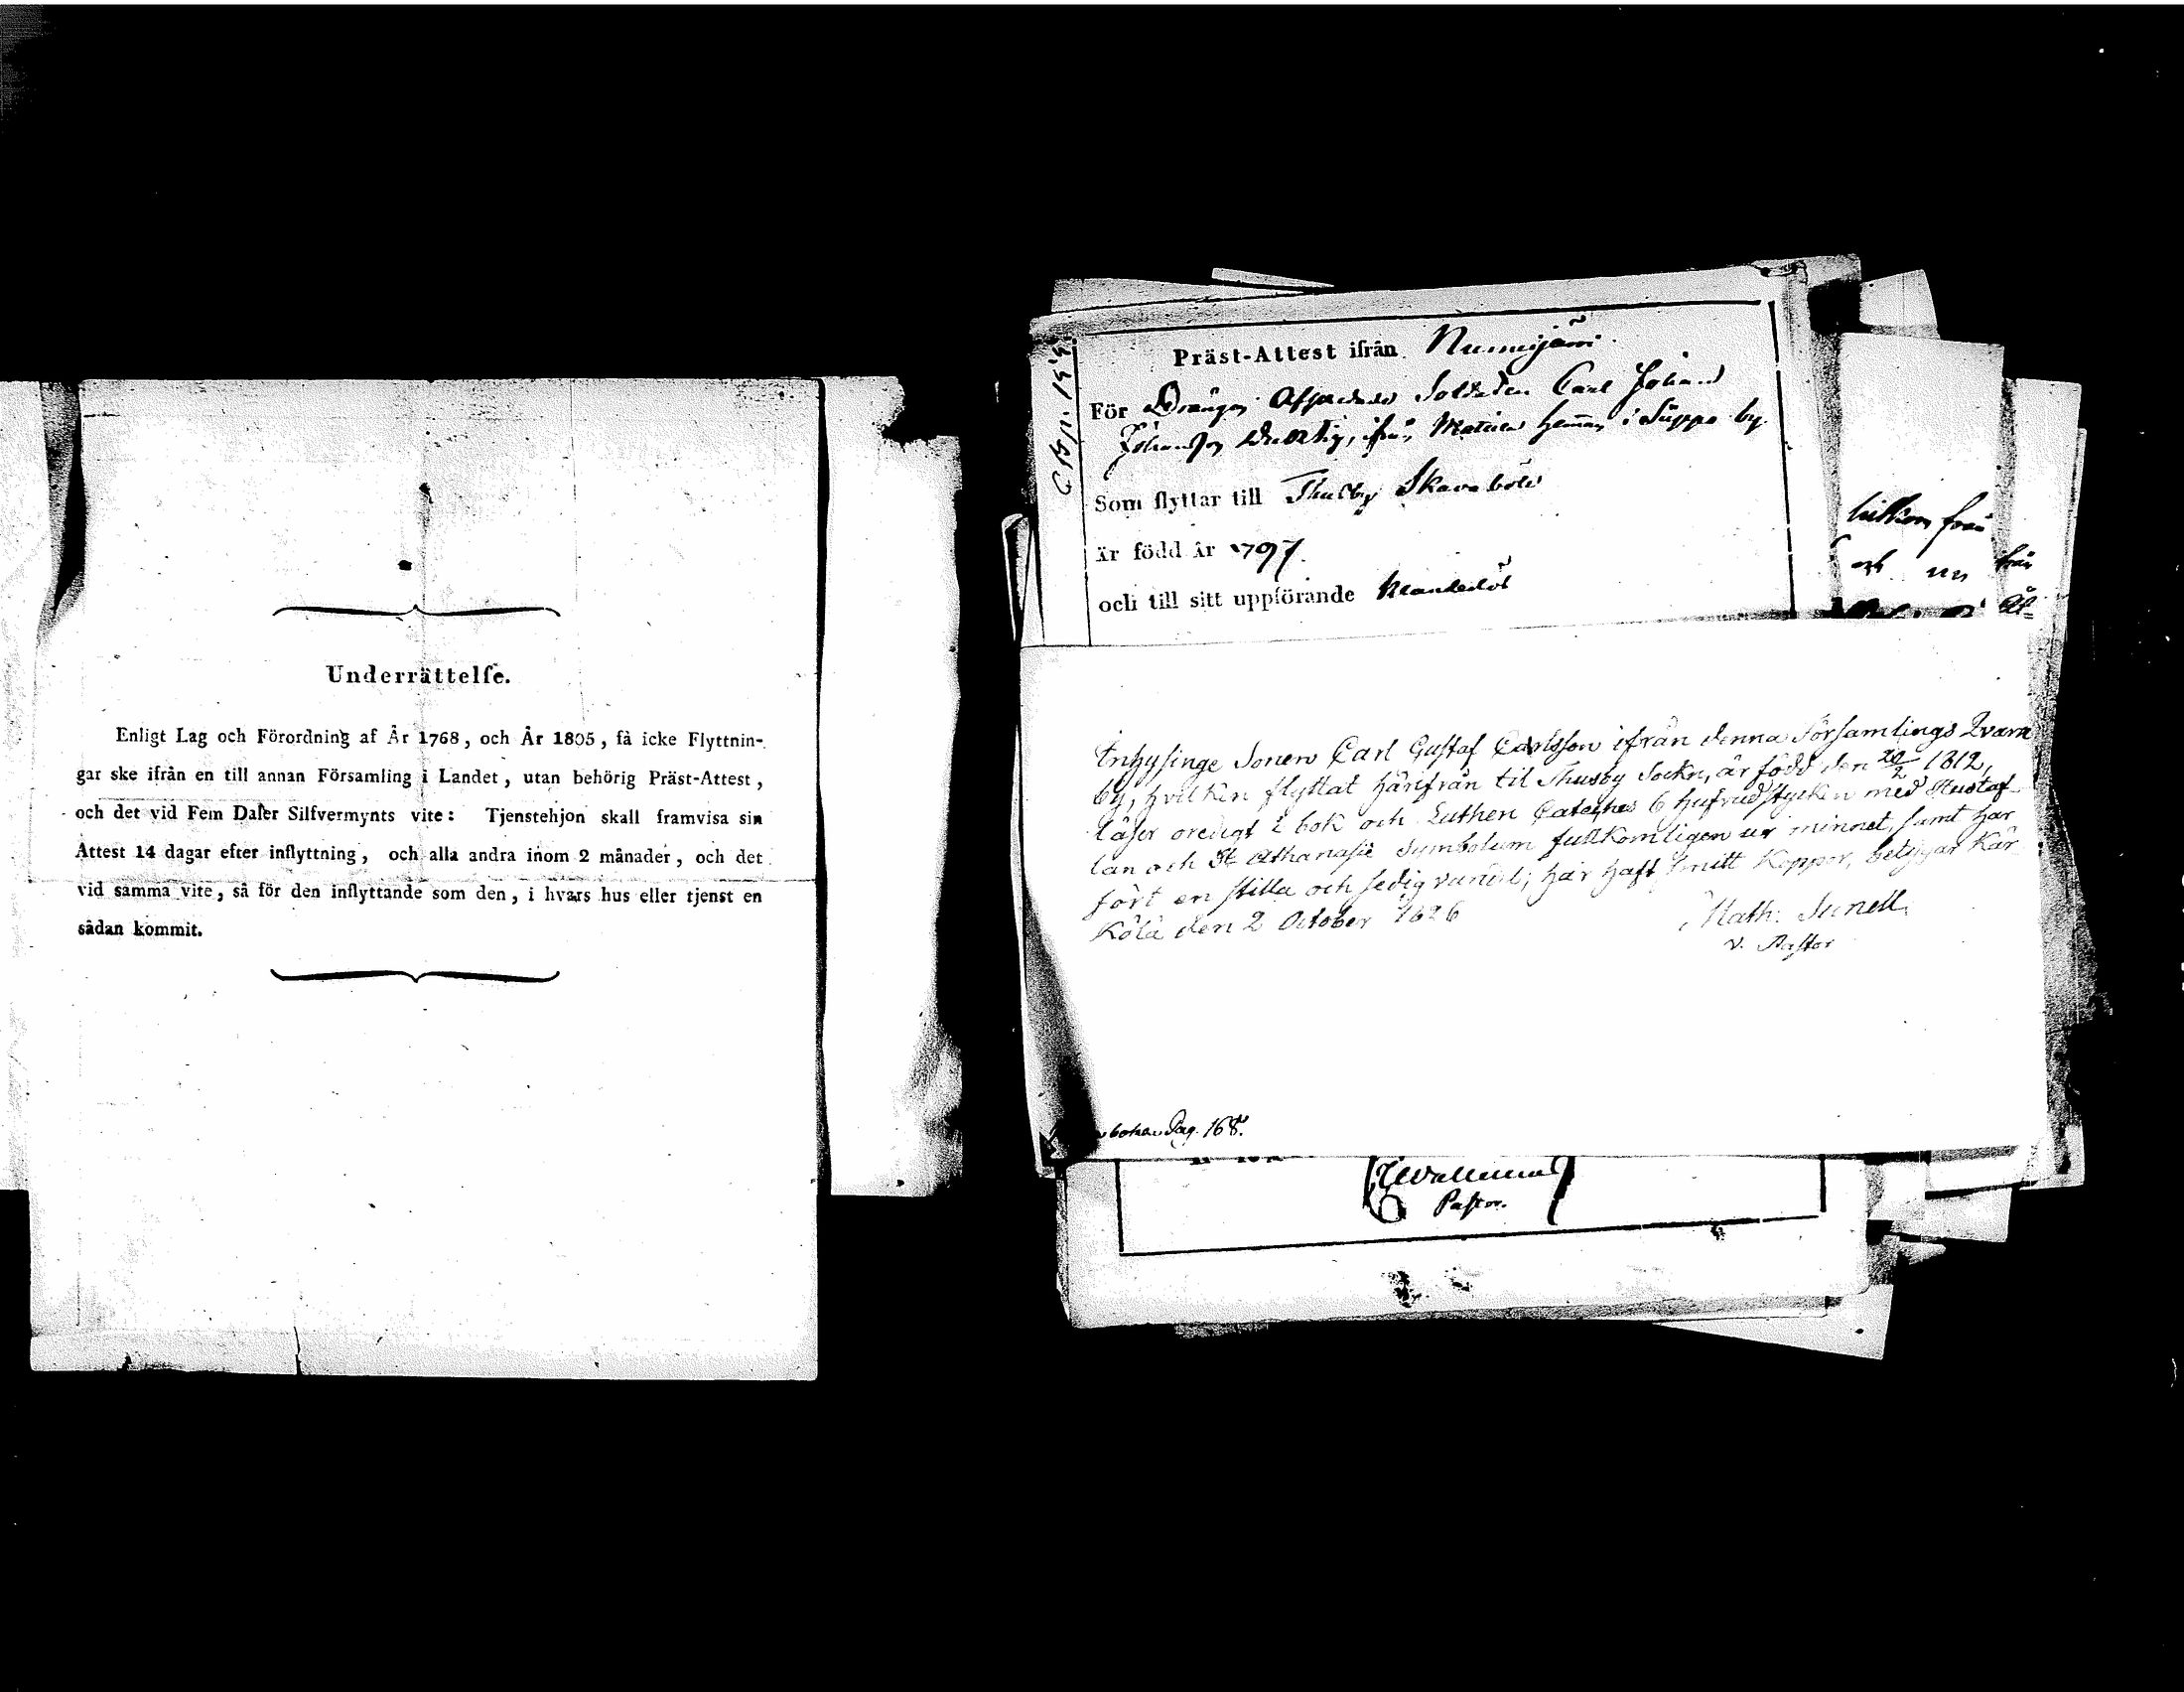 Underrättelſe.
Enligt Lag och Förordning af År 1768, och År 1805, få icke Flyttnin-
gar ske ifrån en till annan Församling i Landet, utan behörig Präst-Attest,
och det vid Fem Daler Silfvermynts vite: Tjenstehjon skall framvisa sin
Attest 14 dagar efter inflyttning, och alla andra inom 2 månader, och det
vid samma vite, så för den inflyttande som den, i hvars hus eller tjenst en
sådan kommit.
Präst-Attest ifrån Nurmijärvi.
För Drängen Afskedade Soldaten Carl Johand
Johansson ifrån hemman i Süppo by
Som flyttar till Thusby Skavaböle
är född år 1797.
och till sitt uppförande
från
från
Inhysinge Sonen Carl Gustaf Carlsson ifrån denna Församlings Qvarn
by, hvilken flyttat härifrån til Thusby Sockn, är född den 20/2 1812,
läser oredigt i bok och Lutheri Cateches 6 hufvudstycken med Hustaf-
lan och St Athanasii Symbolum fullkomligen ur minnet, samt har
fört en stilla och sedig vandel; har haft Smitt Koppor, betygar Kär
kölä den 2 October 1826
Math: Junell
v. Pastor
boken Pag. 168.
Pastor.